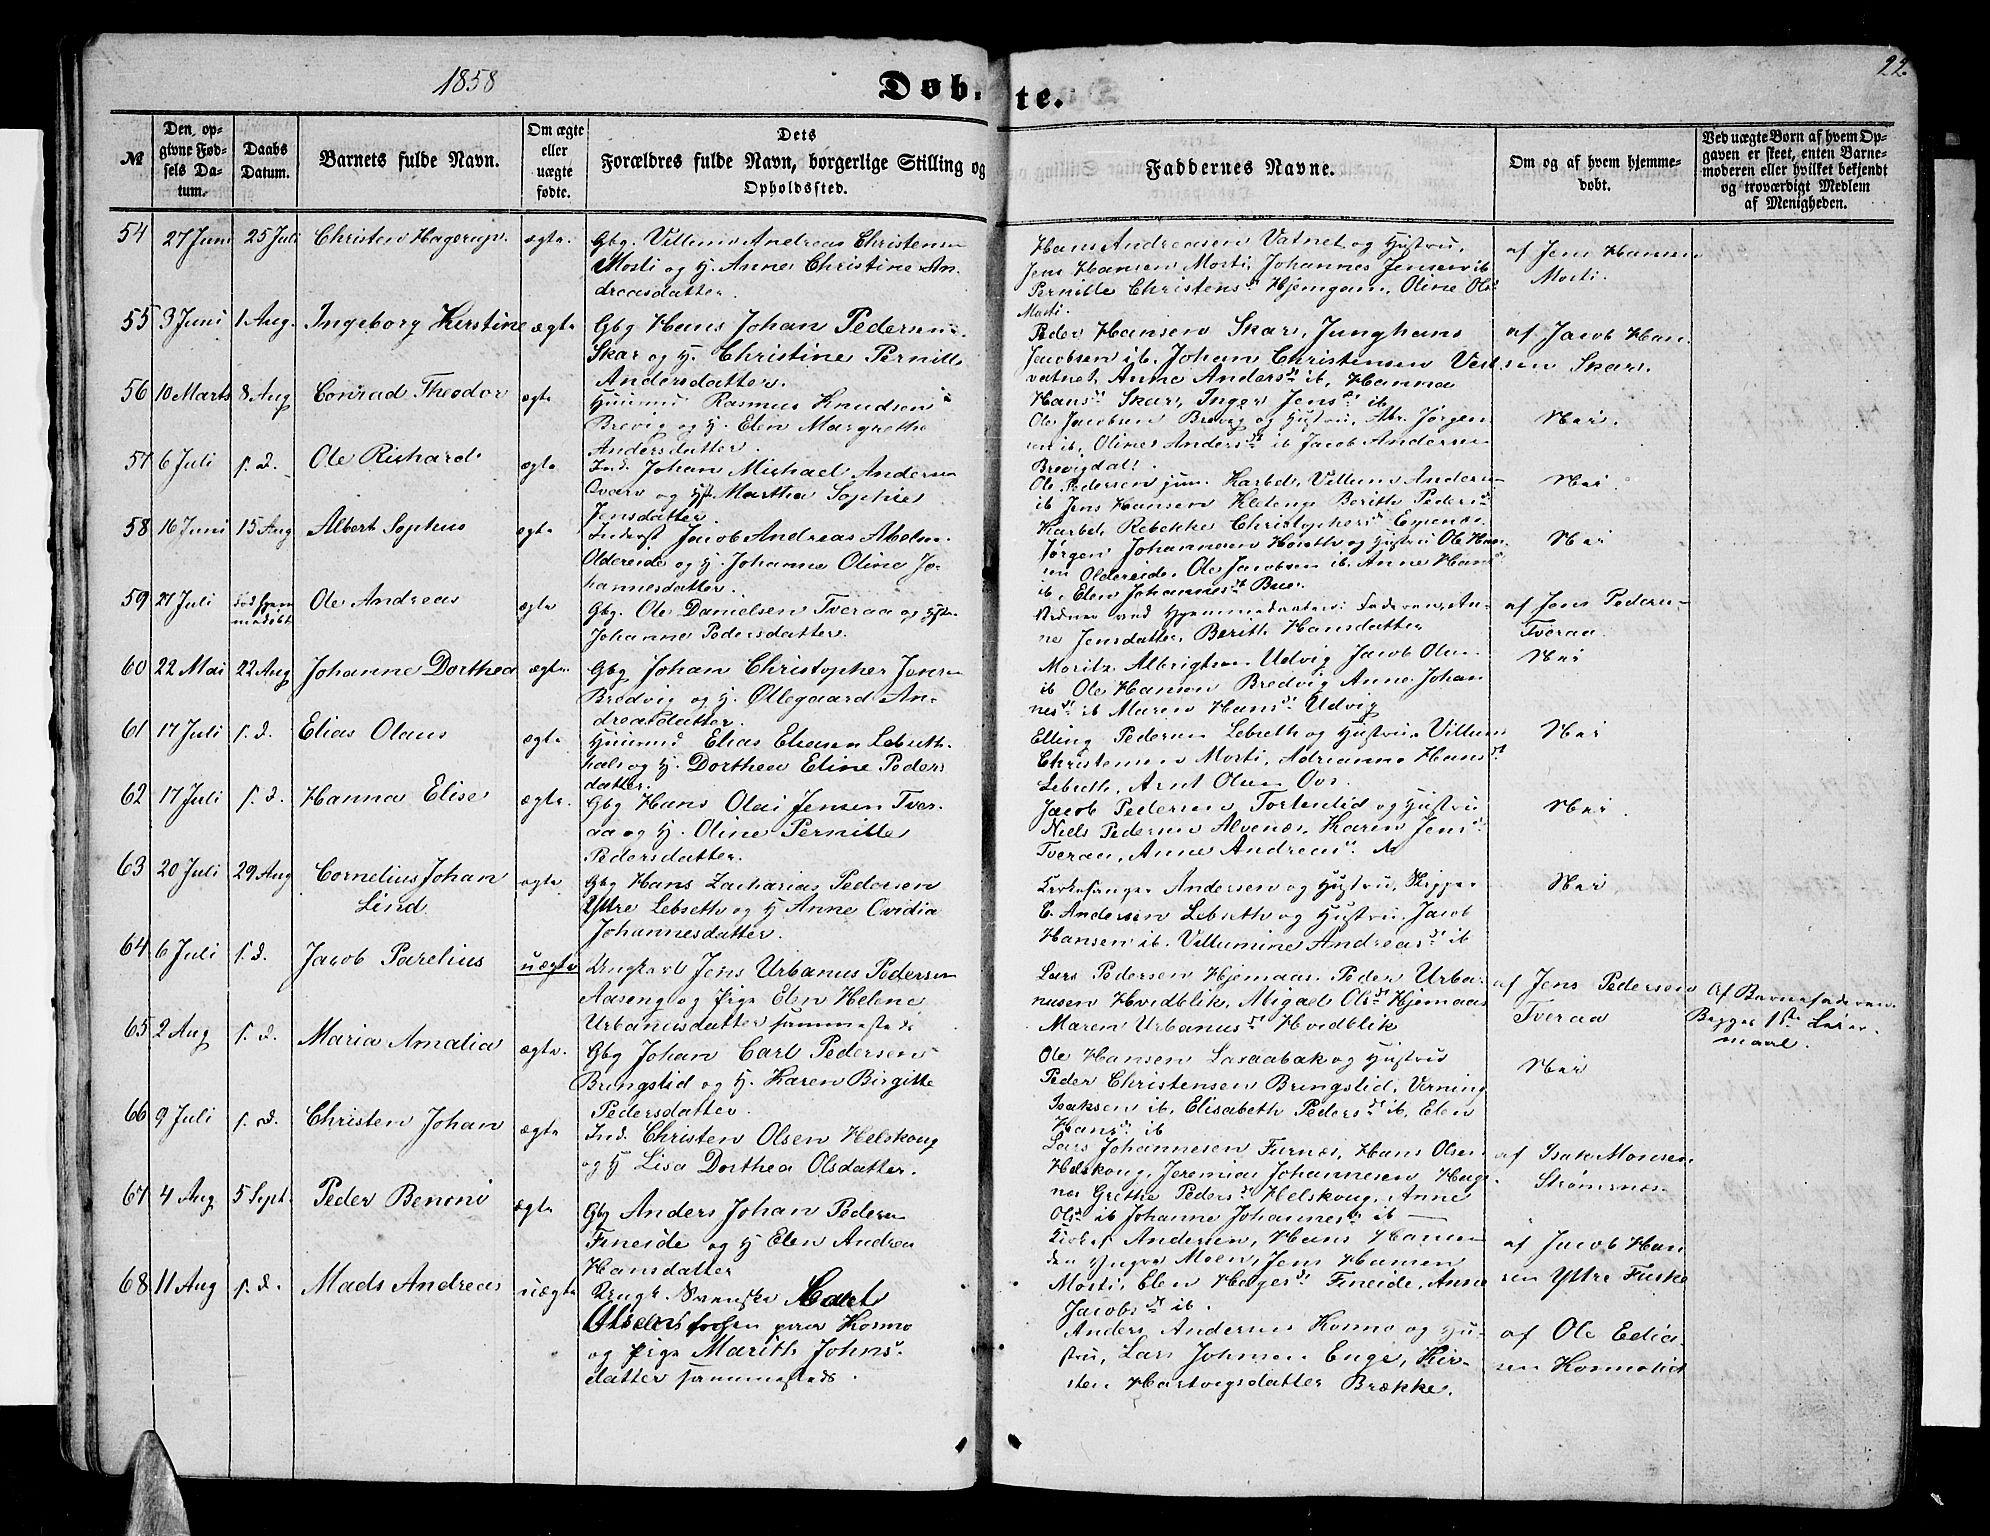 1858
Døbte.
22.
№
Den opgivne Fødsels Datum.
Daabs Datum.
Barnets fulde Navn.
Om ægte eller uægte fødte.
Dets Forældres fulde Navn, borgerlige Stilling og Opholdssted.
Faddernes Navne.
Om og af hvem hjemmedøbt.
Ved uægte Børn af hvem Opgaven er skeet, enten Barnemoderen eller hvilket bekjendt og troværdigt Medlem af Menigheden.
54 27 Juni 25 Juli Christen Hagerup. ægte.
Gbg. Villum Andreas Christensen
Mosti og H. Anne Christine An-
dreasdatter.
Hans Andreasen Vatnet og Hustru,
Jens Hansen Mosti, Johannes Jensen ib
Pernille Christensdt Hjemgam, Oline Ols
Mosti.
af Jens Hansen
Mosti.
55 3 Juni 1 Aug. Ingeborg Kerstine ægte
Gbg Hans Johan Pedersen
Skar og H. Christine Pernille
Andersdatter.
Peder Hansen Skar, Junghans
Jacobsen ib. Johan Christensen Vest
vatnet, Anne Andersdt ib, Hanna
Hansdt Skar, Inger Jensdt ib
af Jacob Han-
sen Skar.
56 10 Marts 8 Aug Conrad Theodor ægte
Huusmd Rasmus Knudsen
Brevig og H. Elen Margrethe
Andersdatter.
Ole Jacobsen Brevig og Hustru, Abr. Jørgen
sen ib, Oline Andersdt ib Jacob Andersen
Brevigdal.
Nei.
57 6 Juli s. d. Ole Richard ægte
Ind. Johan Michael Andersen
Qvarv og Hst Martha Sophie
Jensdatter.
Ole Pedersen jun. Karbøl, Villum Andersen
ib Jens Hansen Kleteng Berith Pedersdt
Karbøl, Rebekke Christophersdt Evenæs.
Nei.
58 16 Juni 15 Aug Albert Sophus ægte
Inderst Jacob Andreas Abelsen
Oldereide og H. Johanna Oline Jo-
hannesdatter.
Jørgen Johannesen Høseth og Hustru Ole Han
sen Oldereide, Ole Jacobsen ib. Anne Hansdt
ib, Elen Johannesdt Bue.
Nei
59 21 Juli død hjem
medøbt Ole Andreas ægte
Gbg. Ole Danielsen Tveraa og Hstr.
Johanne Pedersdatter.
Vidner ved Hjemmedaaben: Faderen, An-
ne Jensdatter, Berith Hansdatter
af Jens Pedersen
Tveraa.
60 22 Mai 22 Aug Johanne Dorthea ægte.
Gbg Johan Christopher Jensen
Bredvig og H. Øllegaard An-
dreasdatter.
Moritz Albrigtsen Udvig Jacob Olsen
ib Ole Hansen Bredvig Anne Johan
nesdt ib Maren Hansdt Udvig
Nei
61 17 Juli s. d. Elias Olaus ægte.
Huusmd Elias Eliasen Lebseth-
hals og H. Dorthea Eline Peders
datter.
Elling Pedersen Lebseth og Hustru, Villum
Christensen Mosti, Adrianna Hansdt
Lebseth, Arnt Olsen Ovs.
Nei
62 17 Juli s. d. Hanna Elise ægte.
Gbg Hans Olai Jensen Tver-
aa og H. Oline Pernille
Pedersdatter.
Jacob Pedersen Tortenlid og Hustru
Niels Pedersen Alvenæs, Karen Jensdt
Tveraa, Anne Andreasdt ib
Nei.
63 20 Juli 29 Aug Cornelius Johan
Lind. ægte.
Gbg Hans Zacharias Pedersen
Yttre Lebseth og H Anne Ovidia
Johannesdatter.
Kirkesanger Andersen og Hustru, Skipper
E. Andersen Lebseth og Hustru, Jacob
Hansen ib. Villumine Andreasdt ib
Nei,
64 6 Juli s. d. Jacob Parelius uægte
Ungkarl Jens Urbanus Pedersen
Aaseng og Pige Elen Helene
Urbanusdatter sammesteds
Lars Pedersen Hjemaas. Peder Urba-
nusen Hvidblik, Abigael Olsdt Hjemaas
Maren Urbanusdt Hvidblik
af Jens Pedersen
Tveraa
Af Barnefaderen.
Begges 1ste Leier-
maal.
65 2 Aug s. d. Maria Amalia ægte.
Gbg Johan Carl Pedersen
Bringslid og H. Karen Birgitte
Pedersdatter.
Ole Hansen Laxaabak og Hustru
Peder Christensen Bringslid, Verning
Isaksen ib, Elisabeth Pedersdt ib, Elen
Hansdt ib
Nei
66 9 Juli s. d. Christen Johan ægte
Ind. Christen Olsen Helskoug
og H Lisa Dorthea Olsdatter.
Lars Johannesen Furnæs, Hans Olsen
Helskoug, Jeremias Johannesen Hag-
næs Grethe Pedersdt Helskoug, Anne
Olsdt ib Johanne Johannesdt ib —
af Isak Monsen
Strømsnæs
67 4 Aug 5 Sept. Peder Benoni ægte
Gbg Anders Johan Pedersen
Fineide og H Elen Andrea
Hansdatter
Kirkes. Andersen, Hans Hansen
den Yngre Moen, Jens Hansen
Mosti, Elen Hagensdt Fineide, Anne
Jacobsdt ib.
af Jacob Han
sen Yttre Fuske
68 11 Aug s. d. Mads Andreas uægte
Ungk. Svenske Carl
Olsen paa Kosmo
og Pige Marith Johns-
datter sammesteds.
Anders Andersen Kosmo og Hu-
stru, Lars Johnsen Enge, Kir-
sten Hartvigsdatter Brække.
af Ole Edia-
sen Kosmolid